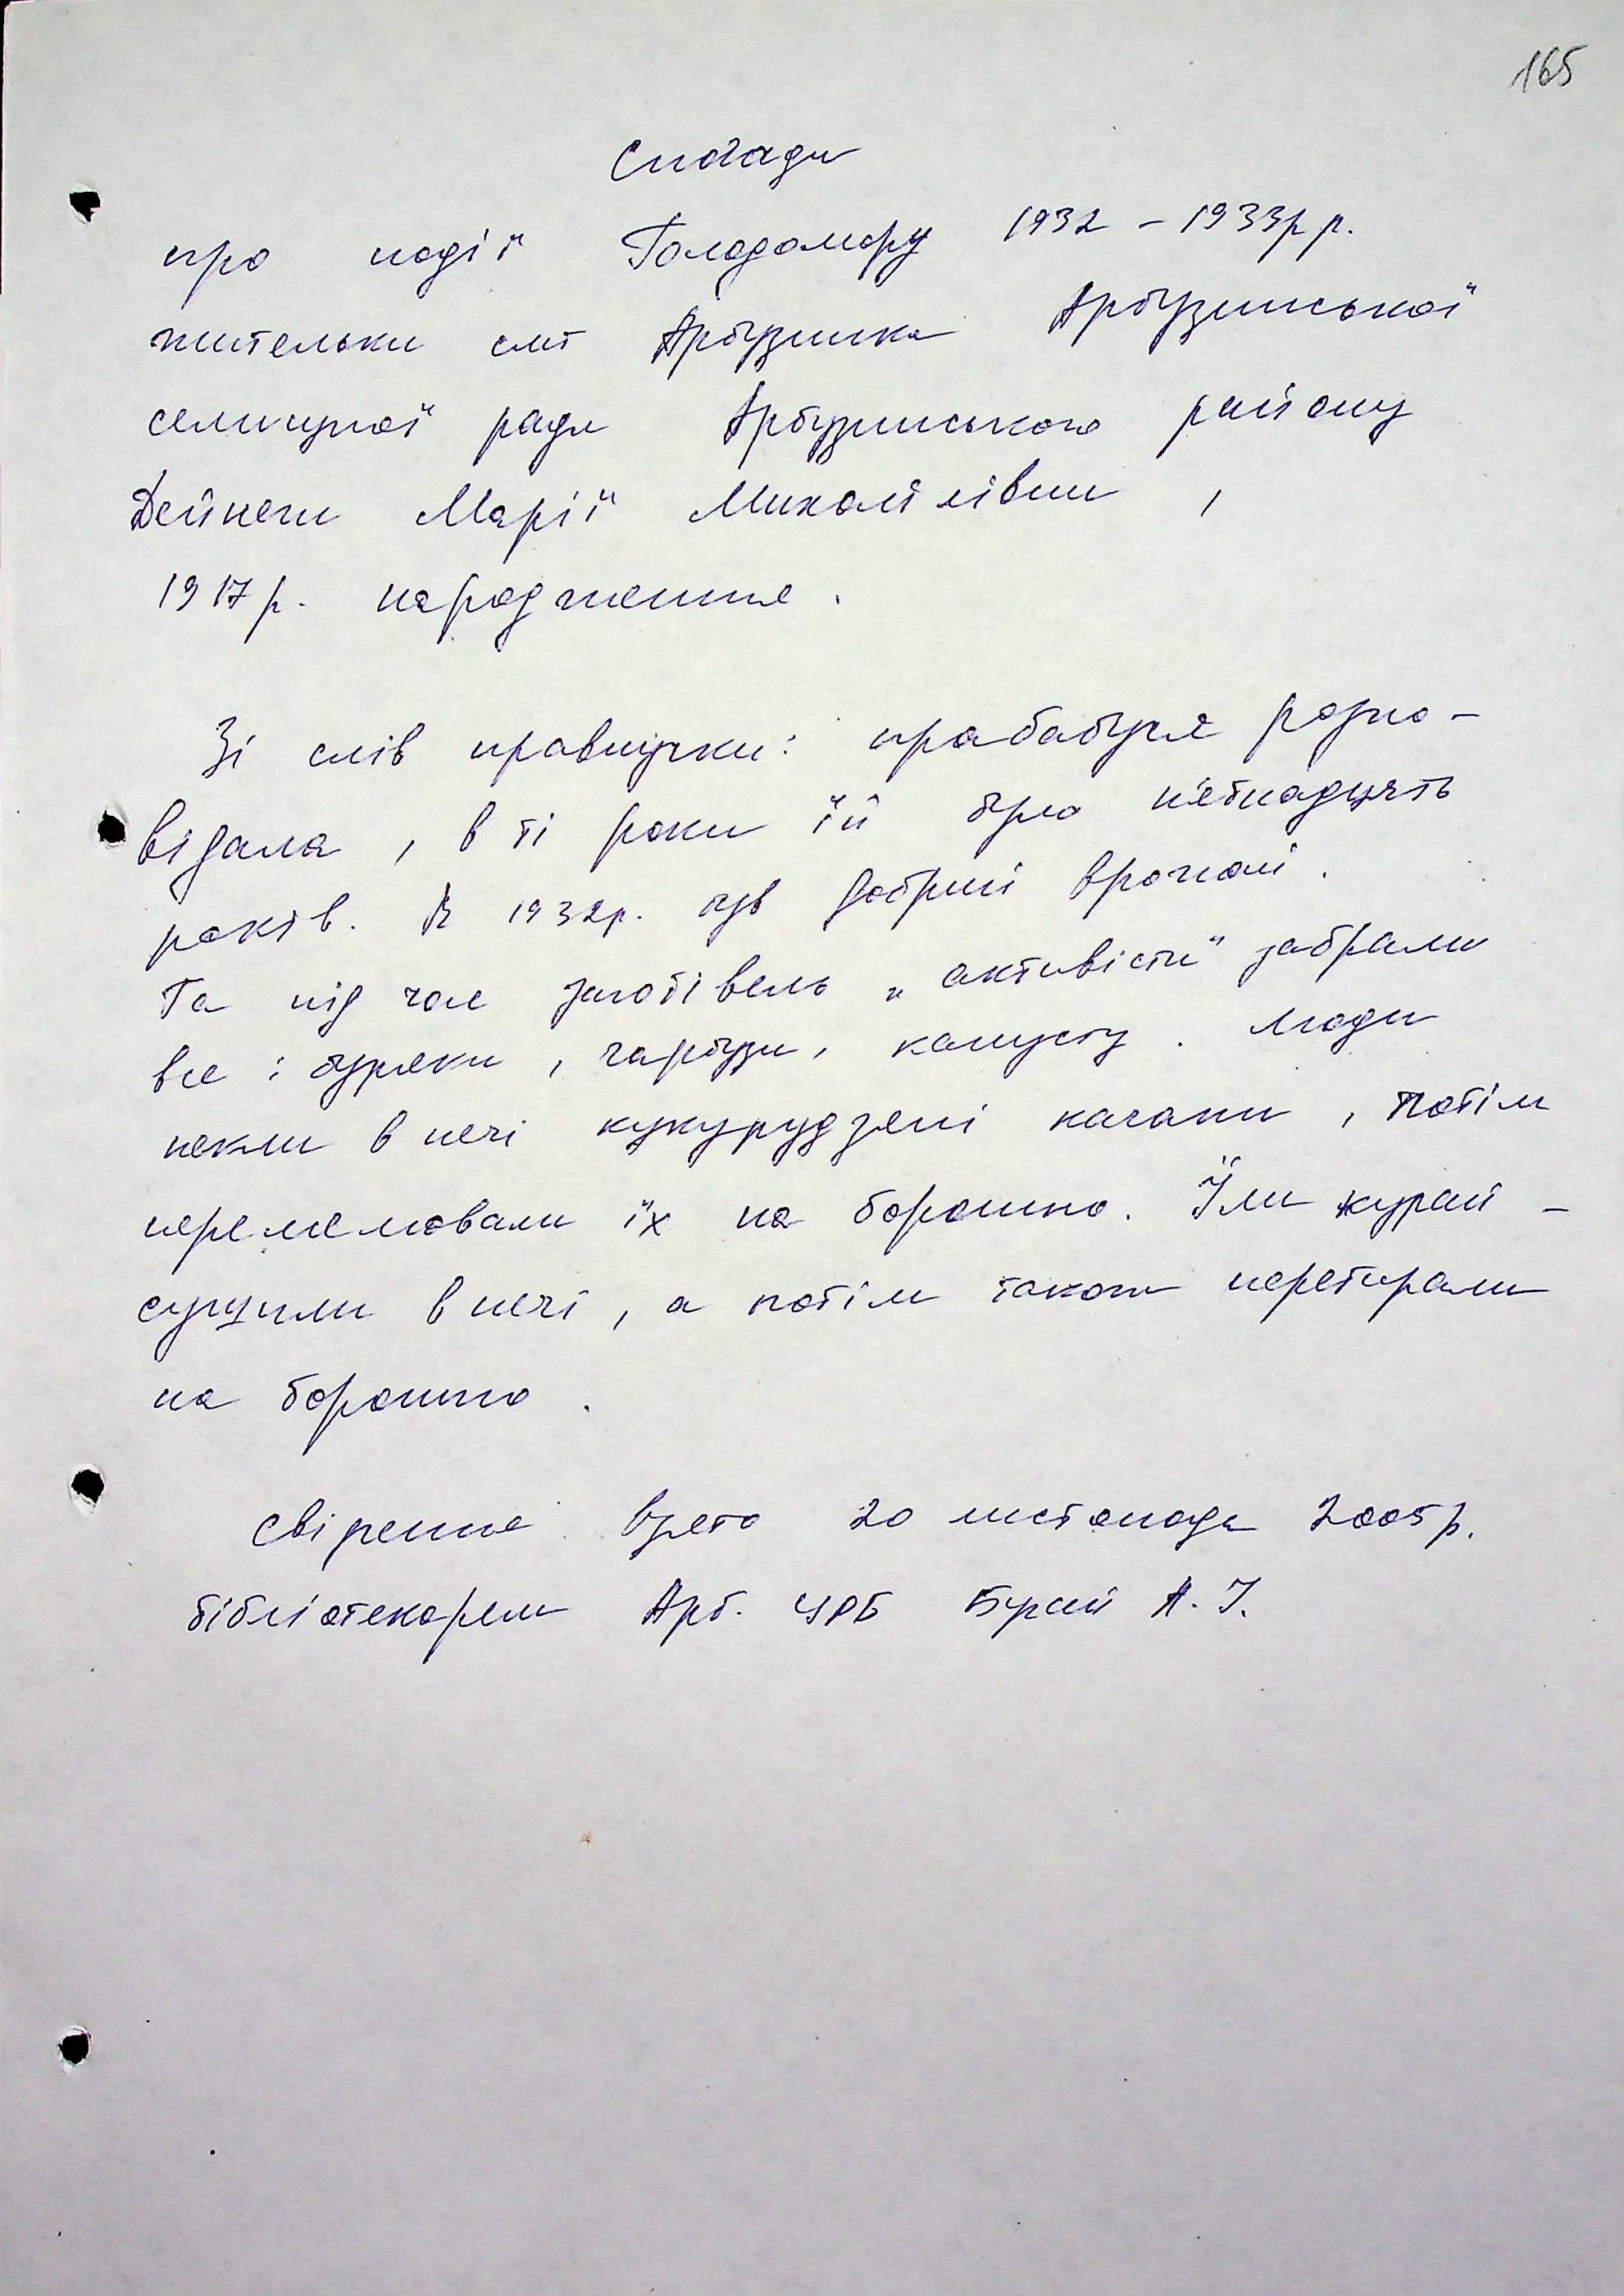 165
Спогади
про події Голодомору 1932 - 1933рр.
жительки смт Арбузинка Арбузинської
селищної ради Арбузинського району
Дейнеги Марії Михайлівни ,
1917р. народження .
Зі слів правнучки : прабабуся розпо -
відала , в ті роки їй було п'ятнадцять
років. В 1932р. був добрий врожай .
Та під час заготівель „ активісти" забрали
все : буряки , гарбузи , капусту . Люди
пекли в печі кукурудзяні качани , потім
перемелювали їх на борошно. Їли журай -
сушили в печі , а потім також перетирали
на борошно .
Свідчення взято 20 листопада 2005р.
бібліотекарем Арб. ЦРБ Бурай А. І.